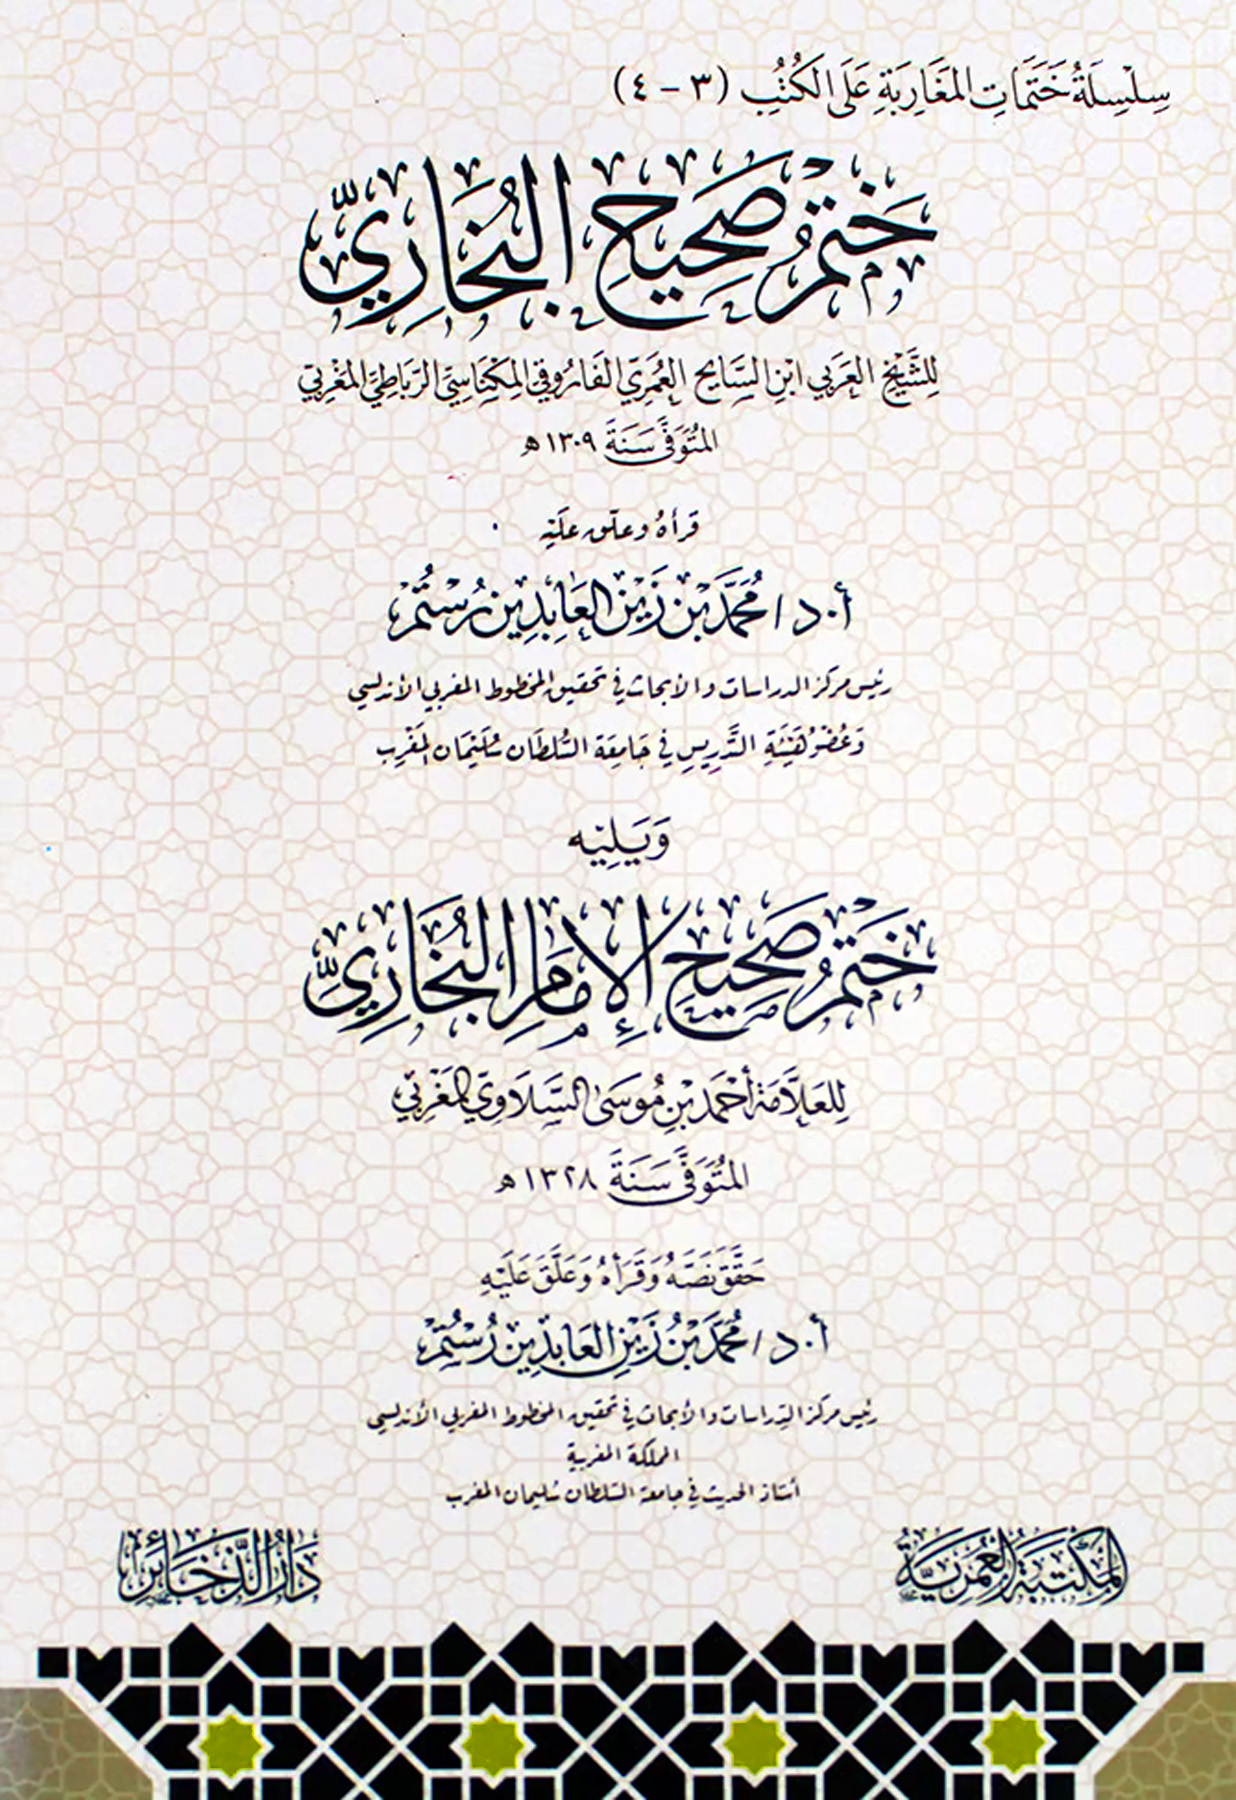 سِلْسِلَةُ خَتَمَاتِ المَغَارِبَةِ عَلَى الكُتُبِ (٣ - ٤)
خَتْمُ صَحِيحِ البُخَارِيِّ
لِلشَّيْخِ العَرَبِي ابْنِ السَّايِحِ العُمَرِيِّ الفَارُوقِي المِكْنَاسِيِّ الرِّبَاطِيِّ المَغْرِبِيِّ
المُتَوَفَّى سَنَةَ ١٣٠٩ هـ
قرأهُ وعلّق عليْه
أ.د/ مُحَمَّد بْن زَيْن العَابِدِين رُسْتُمْ
رئيس مركز الدراسات والأبحاث في تحقيق المخطوط المغربي الأندلسي
وَعُضْوُ هَيْئَةِ التَّدْرِيسِ فِي جَامِعَة السُّلطَان سُلَيْمَان المَغْرِب
وَيَلِيْه
خَتْمُ صَحِيحِ الإِمَامِ البُخَارِيِّ
لِلعَلَّامَة أَحْمَد بْنِ مُوسَى السَّلَاوِيِّ المَغْرِبِيِّ
المُتَوَفَّى سَنَةَ ١٣٢٨ هـ
حَقَّقَ نَصَّهُ وَقَرَأهُ وَعَلَّقَ عَلَيْهِ
أ.د/ مُحَمَّد بْنُ زَيْنِ العَابِدِين رُسْتُمْ
رئيس مركز الدراسات والأبحاث في تحقيق المخطوط المغربي الأندلسي
المملكة المغربية
أستاذ الحديث في جامعة السّلطان سُليمان المغرب
المَكْتَبَةُ العُمَرِيَّة
دَارُ الذَّخَائِر